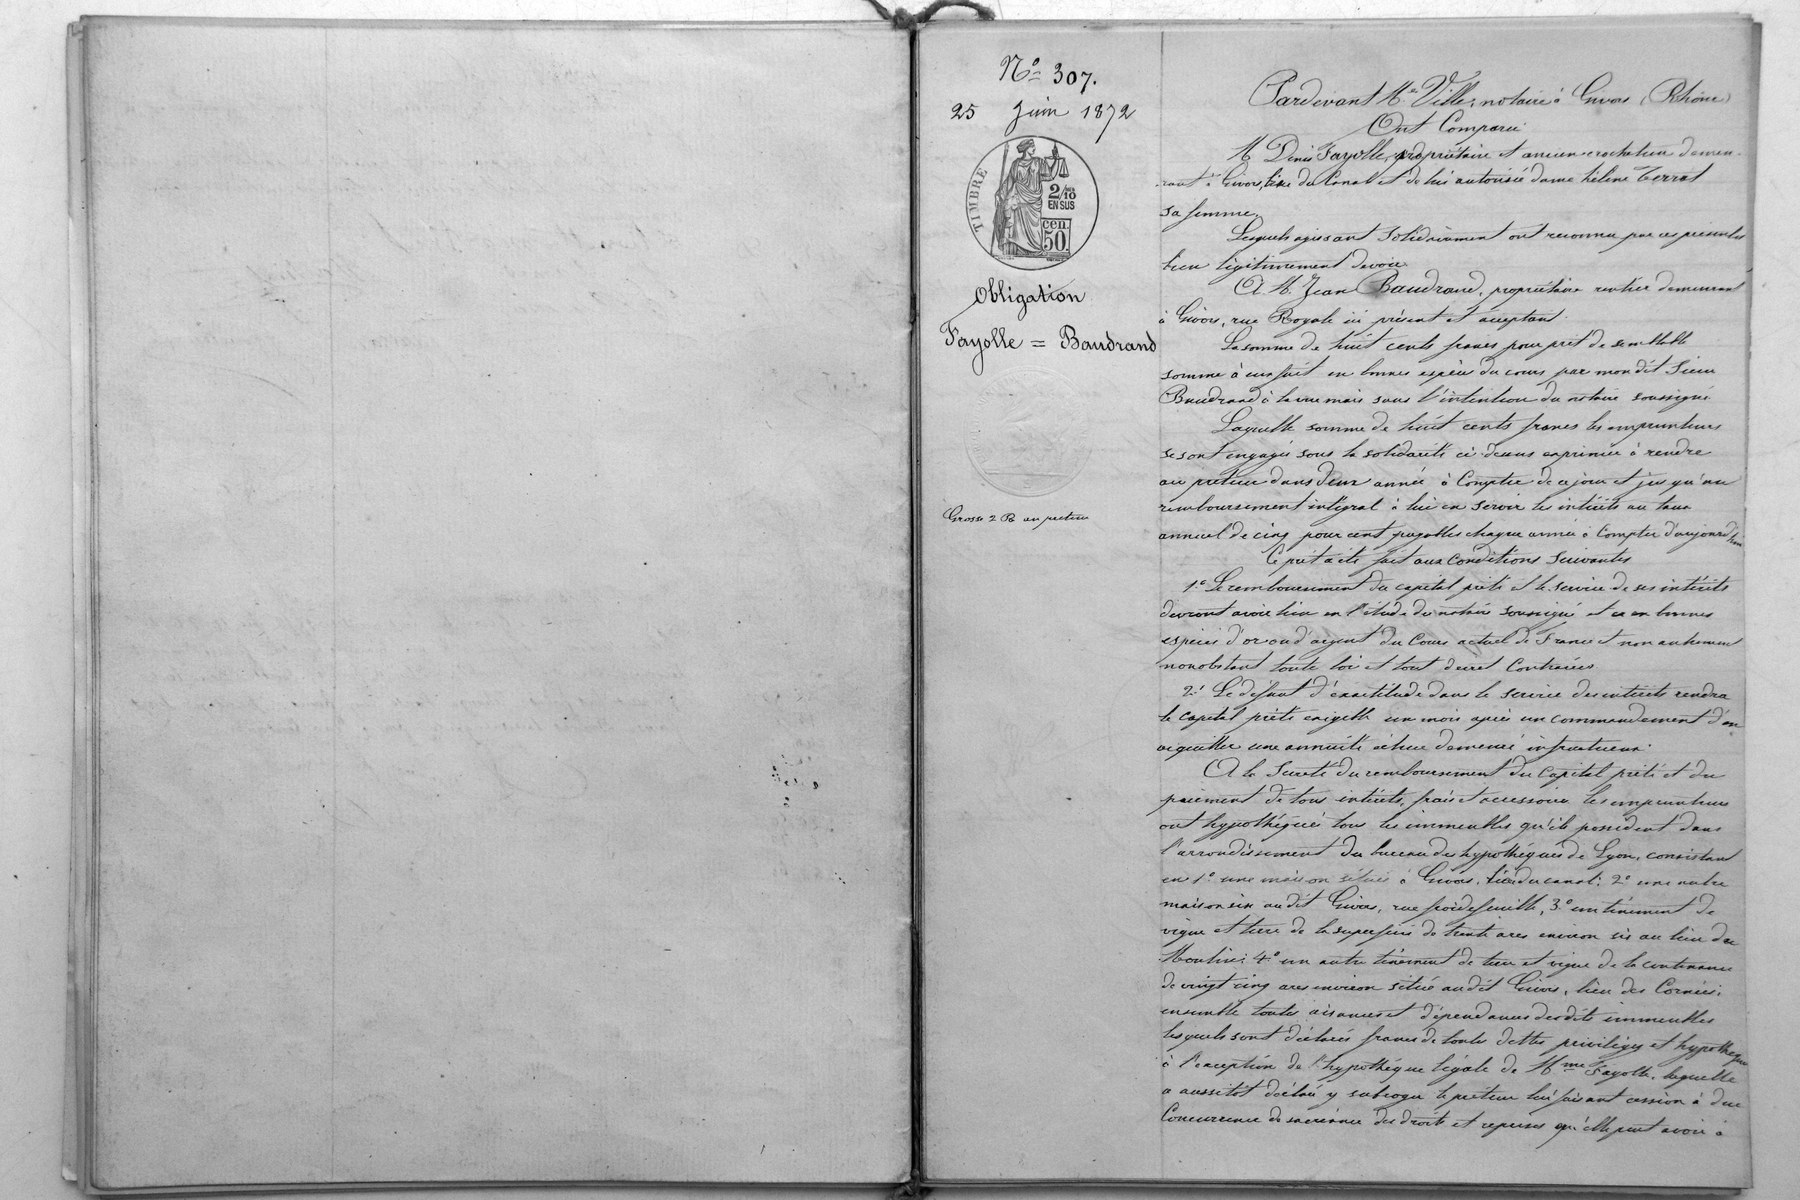 No 307.
25 Juin 1872
TIMBRE
2/10
EN SUS
cen.
50.
Obligation
Fayolle = Baudrand
Grosse 2 R au preteur
Pardevant Me Ville, notaire à Givors (Rhône)
Ont Comparu
M Denis Fayolle, propriétaire et ancien demeu-
rant à Givors, lieu du Canal et de lui autorisée dame hélène Terrat
sa femme.
Lesquels agissant solidairement ont reconnu par ces présentes
bien légitimement devoir
A M. Jean Baudrand, propriétaire rentier demeurant
à Givors, rue Royale ici présent et acceptant.
La somme de huit cents francs pour prêt de semblable
somme à eux fait en bonnes espèces du cours par mon dit Sieur
Baudrand à la vue mais sans l'intention du notaire soussigné.
Laquelle somme de huit cents francs les emprunteurs
se sont engagés sous la solidarité ci-dessus exprimée à rendre
au preteur dans deux année à Compter de ce jour et jusqu'au
remboursement intégral à lui en servir les intérêts au taux
annuel de cinq pour cent payables chaque année à Compter d'aujourd'hui
Ce prêt a été fait aux conditions suivantes
1o Le remboursement du capital prêté et le service de ses intérêts
devront avoir lieu en l'étude du notaire soussigné et ce en bonnes
espèces d'or ou d'argent du Cours actuel de France et non autrement
nonobstant toute loi et tout decret Contraires
2o Le défaut d'exactitude dans le service des intérêts rendra
le capital prêté exigible un mois après un commandement d'en
acquitter une annuité échue demeuré infructueux.
A la Sureté du remboursement du Capital prêté et du
paiement de tous intérêts, frais et accessoires les emprunteurs
ont hypothéqué tous les immeubles qu'ils possedent dans
l'arrondissement du bureau des hypothéques de Lyon, consistant
en 1o une maison située à Givors, lieu du canal; 2o une autre
maison sise au dit Givors, rue froidefeuille, 3o un tènement de
vigne et terre de la superficie de trente ares environ sis au lieu du
Moulin; 4o un autre tènement de terre et vigne de la contenance
de vingt cinq ares environ situé au dit Givors, lieu des Cornées;
ensemble toutes aisances et dépendances desdits immeubles
lesquels sont déclarés francs de toutes dettes privilèges et hypothèques
à l'exception de l'hypothéque légale de Mme Fayolle, laquelle
a aussitot déclaré y subroger le preteur lui faisant cession à due
Concurrence de sa créance des droits et reprises qu'elle peut avoir à